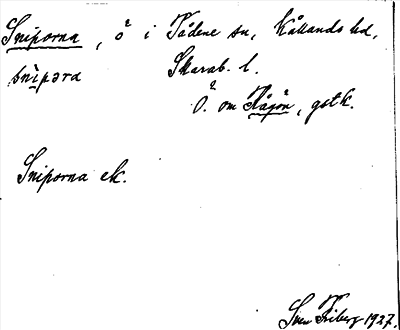 Sniporna, ö i Tådene sn, Kållands hd,
snìpəra Skarab. l.
Ö. om Hågön, gstk.
Sniporna ek.
Sven Friberg 1927.